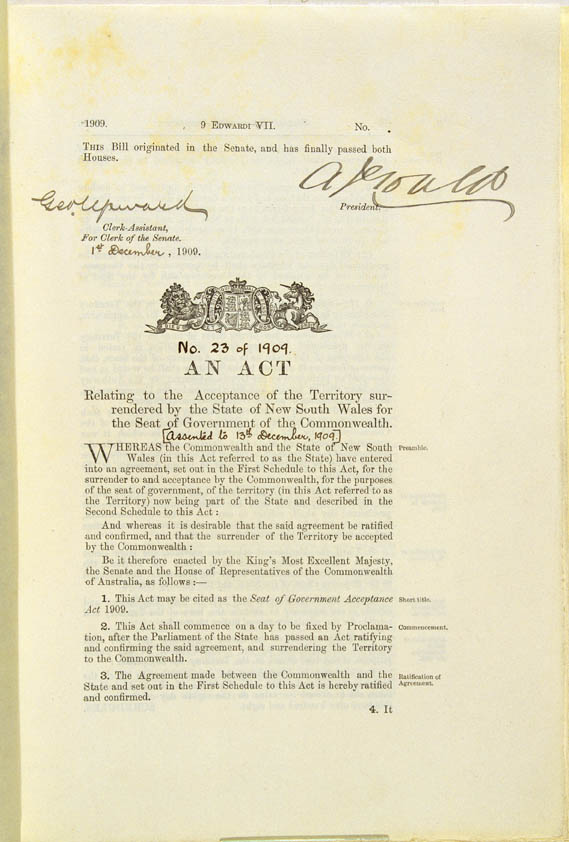 1909.
9 EDWARDI VII.
No. .
THIS Bill originated in the Senate, and has finally passed both
Houses.
A J Gould
President.
Geo Upward
Clerk-Assistant,
For Clerk of the Senate.
1st December, 1909.
No. 23 of 1909.
AN ACT
Relating to the Acceptance of the Territory sur-
rendered by the State of New South Wales for
the Seat of Government of the Commonwealth.
[Assented to 13th December, 1909]
WHEREAS the Commonwealth and the State of New South
Preamble.
Wales (in this Act referred to as the State) have entered
into an agreement, set out in the First Schedule to this Act, for the
surrender to and acceptance by the Commonwealth, for the purposes
of the seat of government, of the territory (in this Act referred to as
the Territory) now being part of the State and described in the
Second Schedule to this Act :
And whereas it is desirable that the said agreement be ratified
and confirmed, and that the surrender of the Territory be accepted
by the Commonwealth :
Be it therefore enacted by the King's Most Excellent Majesty,
the Senate and the House of Representatives of the Commonwealth
of Australia, as follows :—
1. This Act may be cited as the Seat of Government Acceptance
Short title.
Act 1909.
2. This Act shall commence on a day to be fixed by Proclama-
Commencement.
tion, after the Parliament of the State has passed an Act ratifying
and confirming the said agreement, and surrendering the Territory
to the Commonwealth.
3. The Agreement made between the Commonwealth and the
Ratification of
State and set out in the First Schedule to this Act is hereby ratified
Agreement.
and confirmed.
4. It